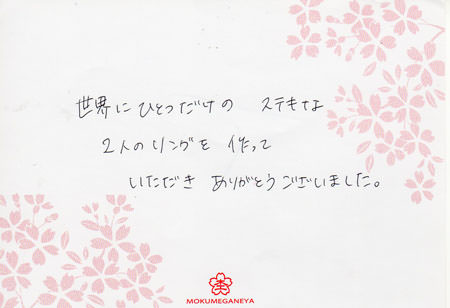 世界にひとつだけの ステキな
2人のリングを 作って
いただき ありがとうございました。
MOKUMEGANEYA